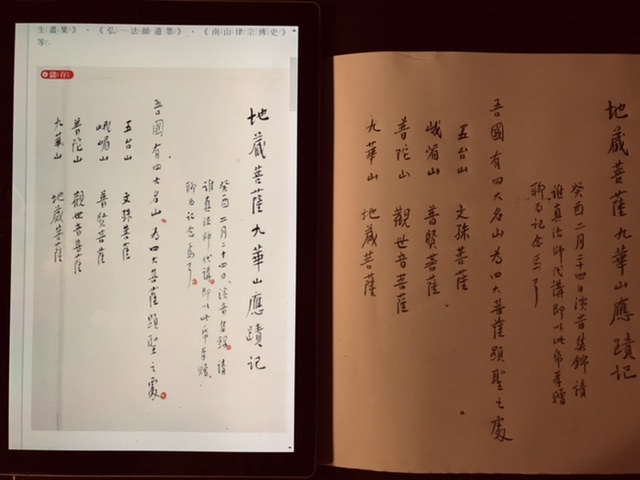 生畫集》、《弘一法師遺墨》、《南山律宗傳史》
等。
儲存
地藏菩薩九華山應蹟記
癸酉二月二十四日演音集錄請
誰真法師代講即以此帋奉贈
聊為記念焉了
吾國有四大名山為四大菩薩顯聖之處
五台山 文殊菩薩
峨嵋山 普賢菩薩
普陀山 觀世音菩薩
九華山 地藏菩薩
地藏菩薩九華山應蹟記
癸酉二月二十四日演音集錄請
誰真法師代講即以此帋奉贈
聊為記念焉了
吾國有四大名山為四大菩薩顯聖之處
五台山 文殊菩薩
峨嵋山 普賢菩薩
普陀山 觀世音菩薩
九華山 地藏菩薩